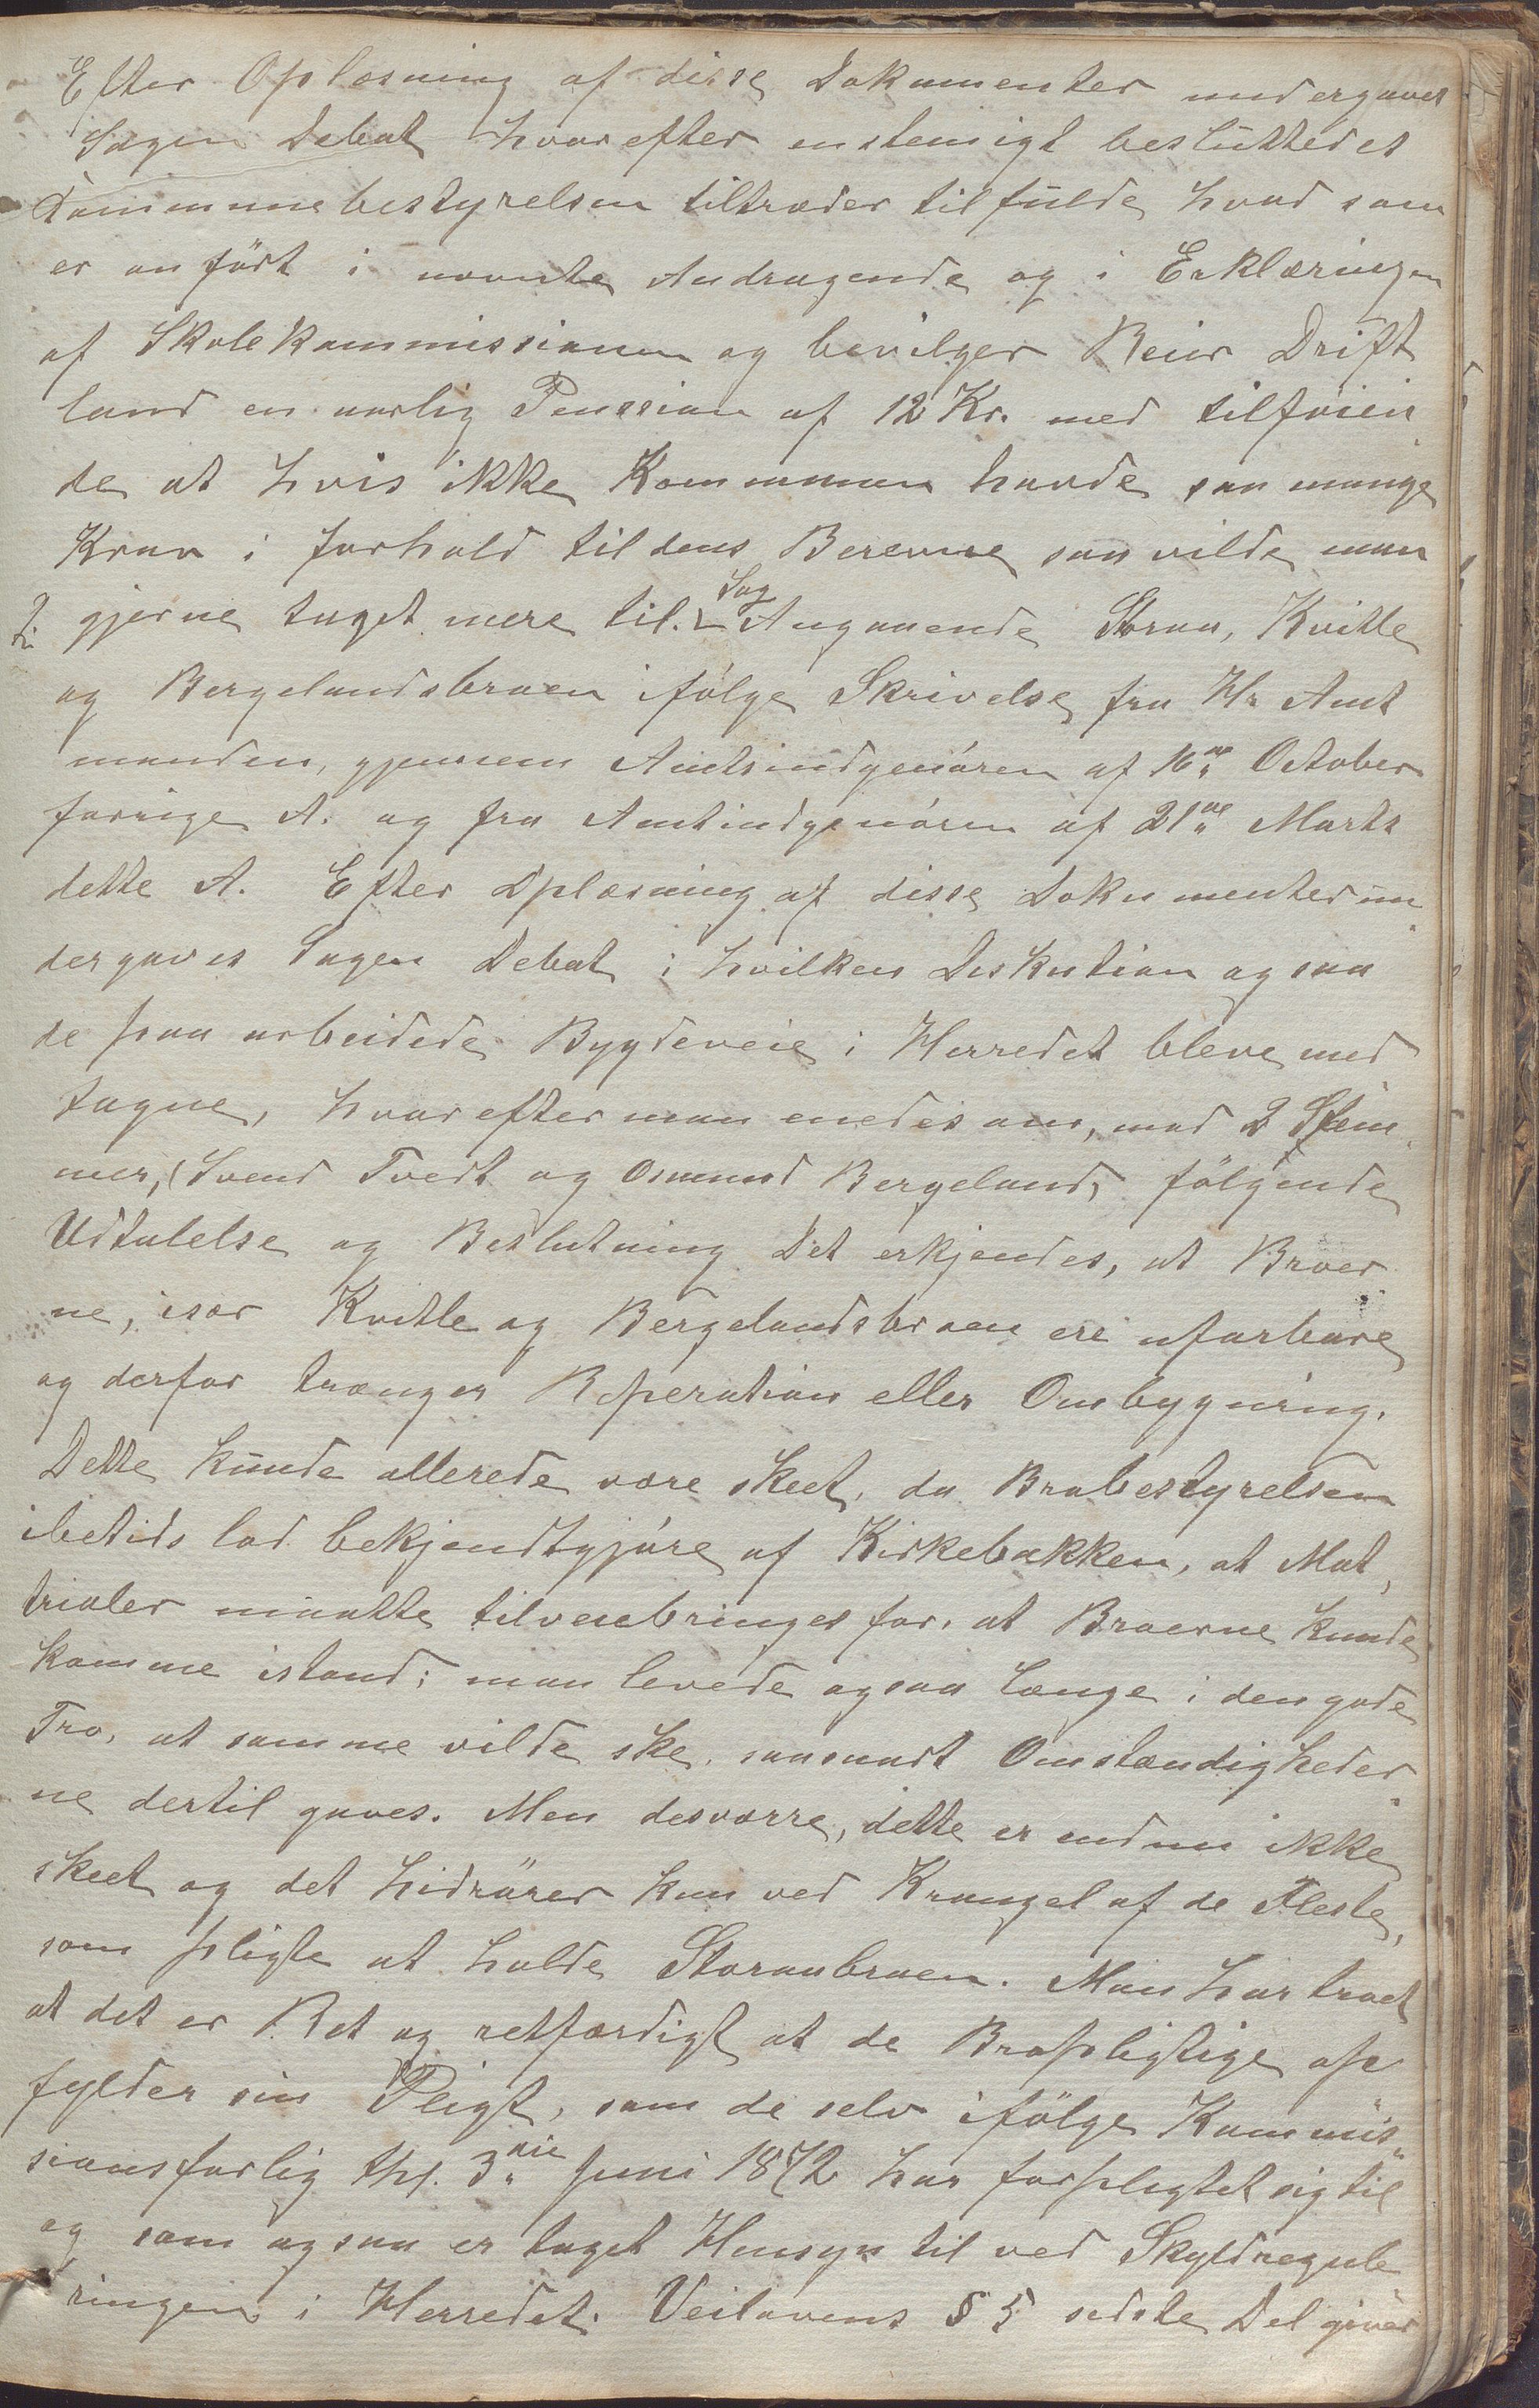 Efter Oplæsning af disse Dokumenter undergaves
Sagen Debat hvorefter enstemigt besluttedes
Kommunebestyrelsen tiltræder tilfulde hvad som
er anført i nævnte Andragende og i Erklæringen
af Skolekommissionen og bevilger Reier Drift
land en aarlig Pension af 12 Kr. med tilføien
de at hvis ikke Kommunen havde saa mange
Krav i forhold til dens Berevne saa vilde man
gjerne taget mere til. Sag Angaaende Storaa, Kvitle
og Bergelandsbroen ifølge Skrivelse fra Hr Amt
manden, gjennem Amtsindgenøren af 16de October
forrige A. og fra Amtindgenøren af 21de Marts
dette A. Efter Oplæsning af disse Dokumenter un
dergaves Sagen Debat i hvilken Diskution ogsaa
de paa arbeidede Bygdeveie i Herredet bleve med
tagne, hvorefter man enedes om, mod 2 Stem
mer, (Svend Tvedt og Osmund Bergeland, følgende
Udtalelse og Beslutning Det erkjendes, at Broer
ne, især Kvitle og Bergelandsbroen ere ufarbare
og derfor trænger Reperation eller Ombygning.
Dette kunde allerede være skeet, da Brobestyrelsen
ibetids lod bekjendtgjøre af Kirkebakken, at Mat
trialer maatte tilveiebringes for, at Broerne kunde
komme istand; man levede ogsaa længe i den gode
Tro, at samme vilde ske, saasandt Omstændigheder
ne dertil gaves. Men desværre, dette er endnu ikke
skeet og det hidrører kun ved Krangel af de Fleste,
som pligte at holde Storaabroen. Man har troet
at det er Ret og retfærdigt at de Bropligtige op
fylder sin Pligt, som de selv ifølge Kommis
sionsforlig thf. 3die Juni 1872 har forpligtet sig til
og som ogsaa er taget Hensyn til ved Skyldregule
ringen i Herredet. Veilovens § 5 sidste Del giver